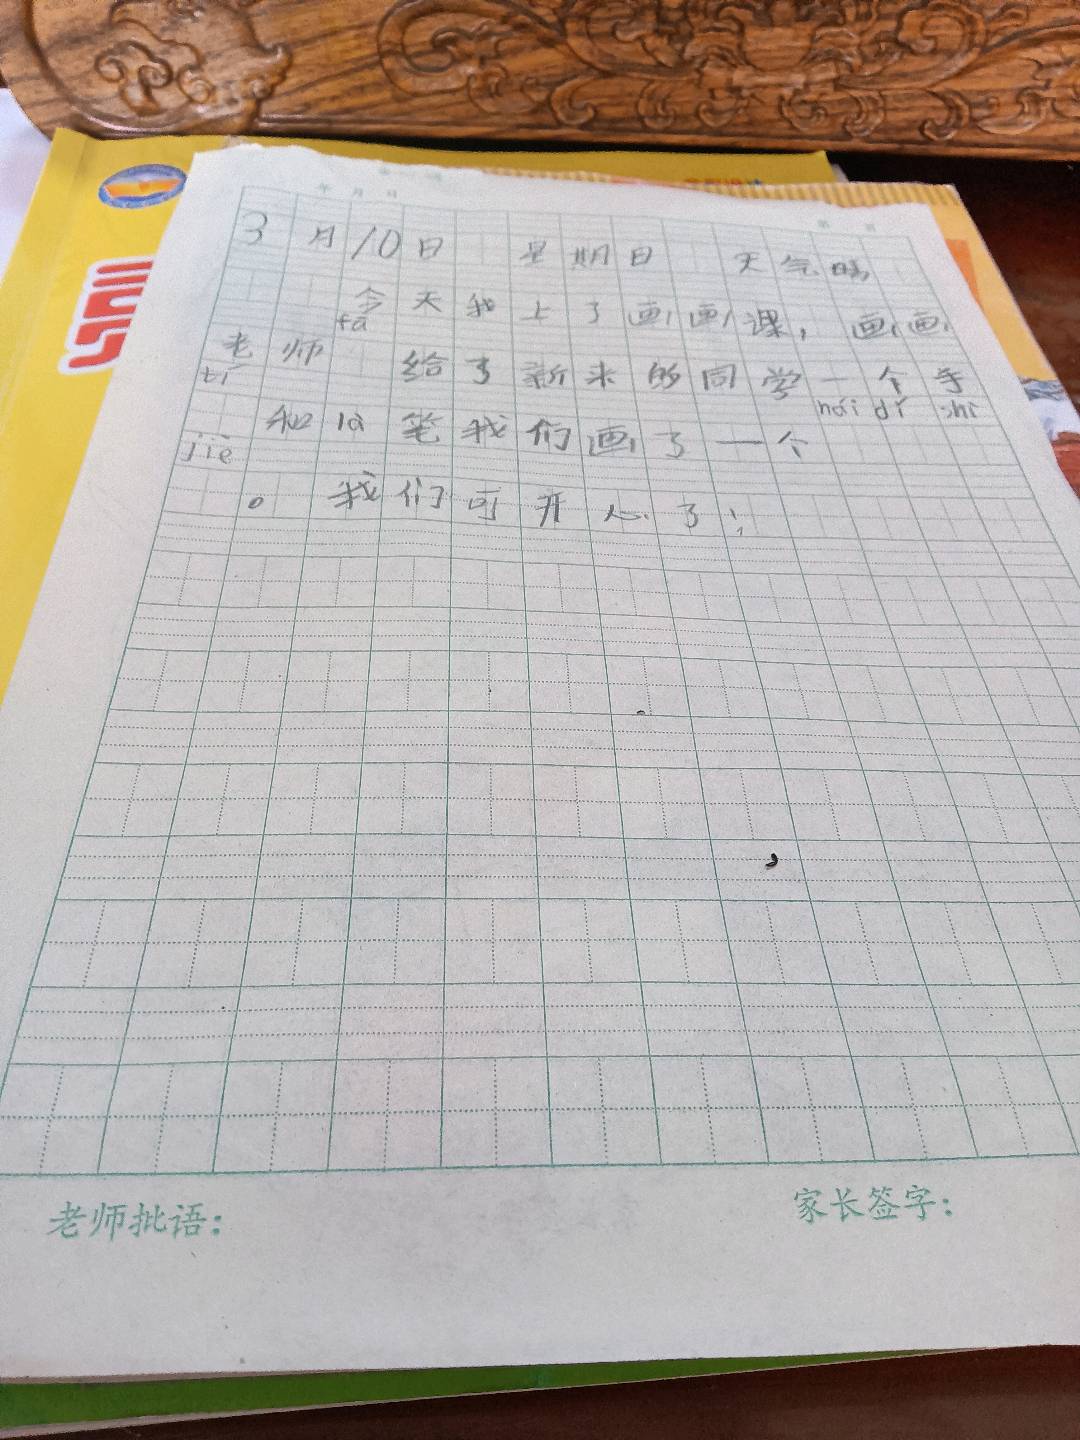 年 月 日
3月10日 星期日 天气晴
今天我上了画画课，画画
fā
老师 给了新来的同学一个手
tí hái dǐ shì
和là笔我们画了一个
jiè
。我们可开心了！
老师批语：
家长签字：